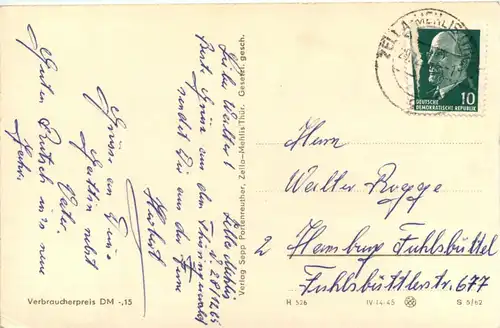 ZELLA-MEHLIS
10
DEUTSCHE
DEMOKRATISCHE REPUBLIK
Zella Mehlis
28/12 65
Lieber Walter!
Beste Grüße aus dem Thüringerwald
sendet Dir aus der Ferne
Herbert
Grüße an Deine
Gattin nebst
Vater.
Guten Rutsch ins neue
Jahr.
Verlag Sepp Portenreuther, Zella-Mehlis Thür. Gesetzl. gesch.
Herrn
Walter Rogge
2 Hamburg Fuhlsbüttel
Fuhlsbüttlerstr. 677
Verbraucherpreis DM -,15
H 526
IV-14-45
S 5/62